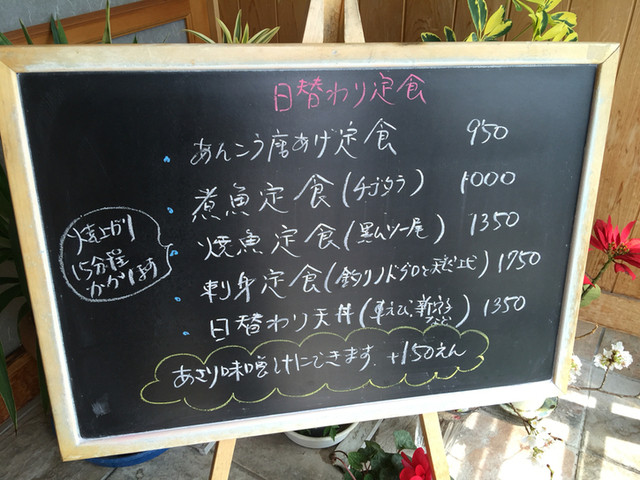 日替わり定食
あんこう唐あげ定食 950
煮魚定食(チゴダラ) 1000
焼魚定食(黒ムツ一尾) 1350
刺身定食(釣りノドグロと) 1750
日替わり天丼(車えび、新) 1350
焼上がり
15分程
かかります
あさり味噌汁にできます +150えん